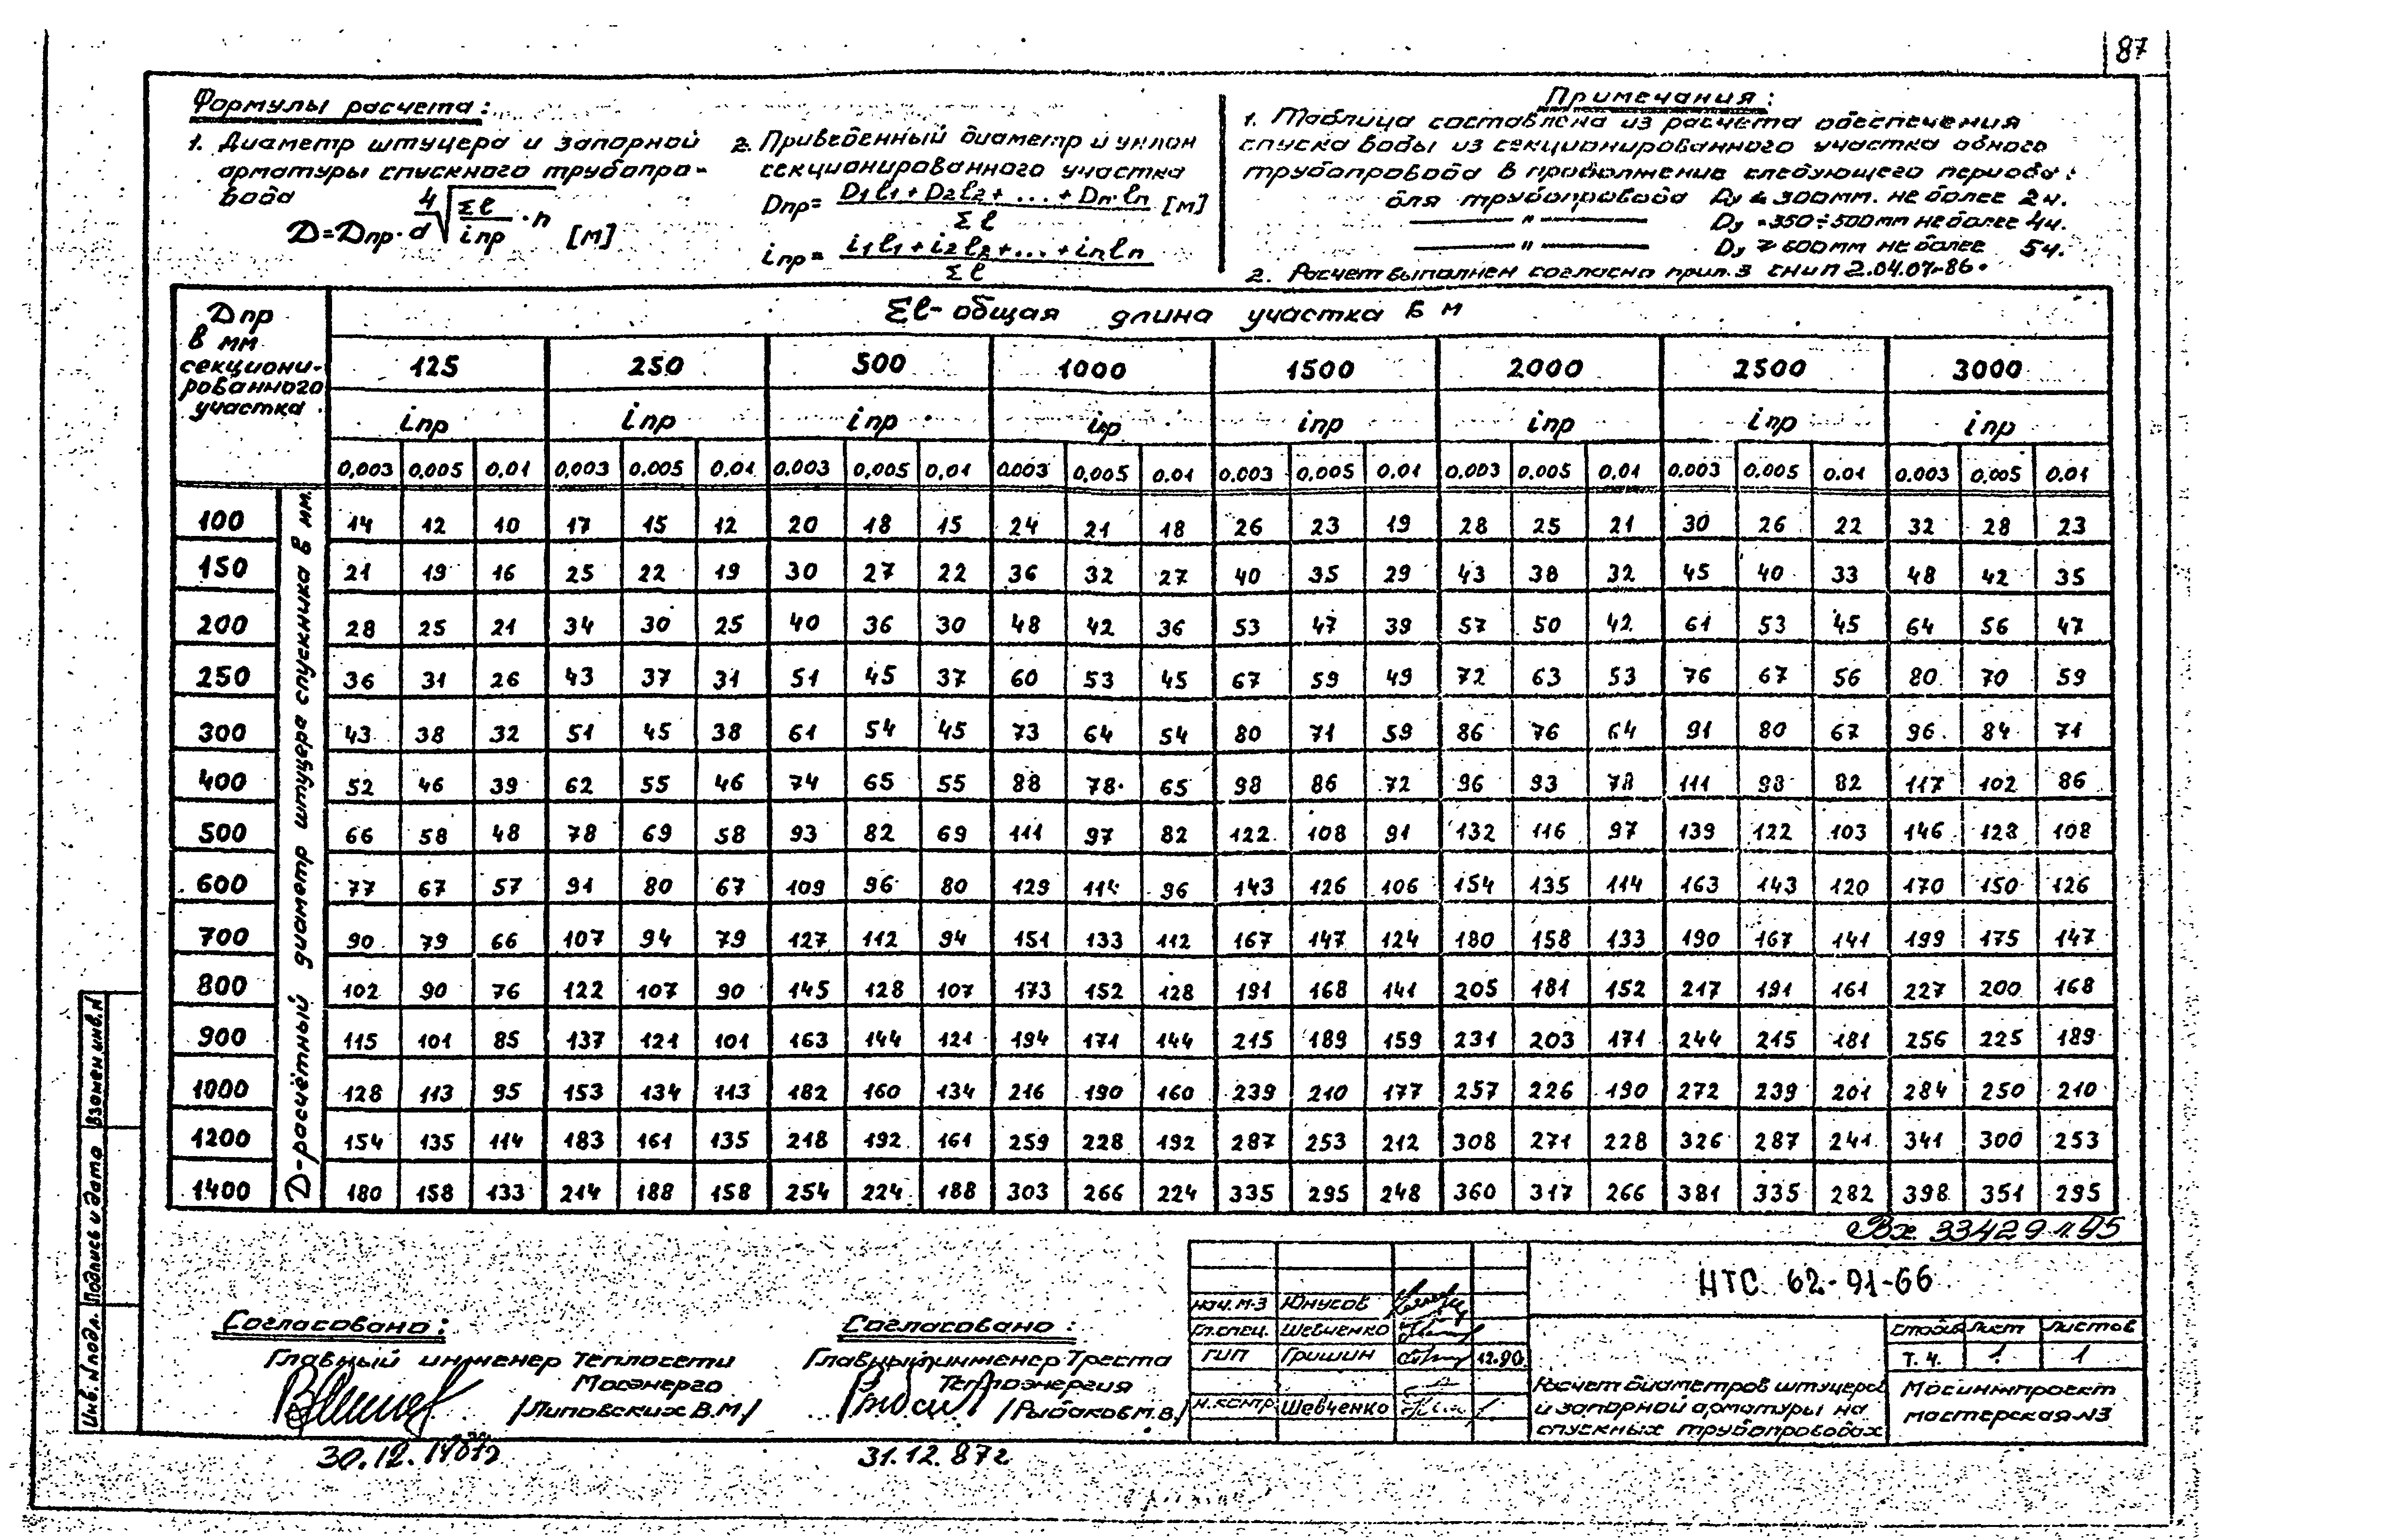 87
Формулы расчета:
1. Диаметр штуцера и запорной
арматуры спускного трубопро-
вода
D=Dпр·d ⁴√Σℓ/iпр·n [м]
2. Приведенный диаметр и уклон
секционированного участка
Dпр= D1ℓ1+D2ℓ2+...+Dn·ℓn / Σℓ [м]
iпр= i1ℓ1+i2ℓ2+...+inℓn / Σℓ
Примечания:
1. Таблица составлена из расчета обеспечения
спуска воды из секционированного участка одного
трубопровода в продолжение следующего периода:
для трубопровода Dу ≤ 300мм. не более 2ч.
—— " —— Dу =350÷500мм не более 4ч.
—— " —— Dу ≥ 600мм не более 5ч.
2. Расчет выполнен согласно прил.3 СНиП 2.04.07-86.
Dпр
в мм
секциони-
рованного
участка
Σℓ- общая длина участка в м
125 250 500 1000 1500 2000 2500 3000
iпр iпр iпр iпр iпр iпр iпр iпр
0,003 0,005 0,01 0,003 0,005 0,01 0,003 0,005 0,01 0,003 0,005 0,01 0,003 0,005 0,01 0,003 0,005 0,01 0,003 0,005 0,01 0,003 0,005 0,01
D-расчётный диаметр штуцера спускника в мм.
100 14 12 10 17 15 12 20 18 15 24 21 18 26 23 19 28 25 21 30 26 22 32 28 23
150 21 19 16 25 22 19 30 27 22 36 32 27 40 35 29 43 38 32 45 40 33 48 42 35
200 28 25 21 34 30 25 40 36 30 48 42 36 53 47 39 57 50 42 61 53 45 64 56 47
250 36 31 26 43 37 31 51 45 37 60 53 45 67 59 49 72 63 53 76 67 56 80 70 59
300 43 38 32 51 45 38 61 54 45 73 64 54 80 71 59 86 76 64 91 80 67 96 84 71
400 52 46 39 62 55 46 74 65 55 88 78 65 98 86 72 96 93 78 111 98 82 117 102 86
500 66 58 48 78 69 58 93 82 69 111 97 82 122 108 91 132 116 97 139 122 103 146 128 108
600 77 67 57 91 80 67 109 96 80 129 114 96 143 126 106 154 135 114 163 143 120 170 150 126
700 90 79 66 107 94 79 127 112 94 151 133 112 167 147 124 180 158 133 190 167 141 199 175 147
800 102 90 76 122 107 90 145 128 107 173 152 128 191 168 141 205 181 152 217 191 161 227 200 168
900 115 101 85 137 121 101 163 144 121 194 171 144 215 189 159 231 203 171 244 215 181 256 225 189
1000 128 113 95 153 134 113 182 160 134 216 190 160 239 210 177 257 226 190 272 239 201 284 250 210
1200 154 135 114 183 161 135 218 192 161 259 228 192 287 253 212 308 271 228 326 287 241 341 300 253
1400 180 158 133 214 188 158 254 224 188 303 266 224 335 295 248 360 317 266 381 335 282 398 351 295
Вх. 33429 л. 95
Взамен инв.N
Подпись и дата
Инв.N подл.
Согласовано:
Главный инженер Теплосети
Мосэнерго
/Липовских В.М./
Согласовано:
Главный инженер Треста
Теплоэнергия
/Рыбаков м.в./
31.12.87г
нач.М-3 Юнусов
Гл.спец. Шевченко
ГИП Гришин 12.90.
Н.контр. Шевченко
НТС 62-91-66
Расчет диаметров штуцеров
и запорной арматуры на
спускных трубопроводах
Стадия Лист Листов
Т.Ч. 1 1
Мосинжпроект
мастерская N3